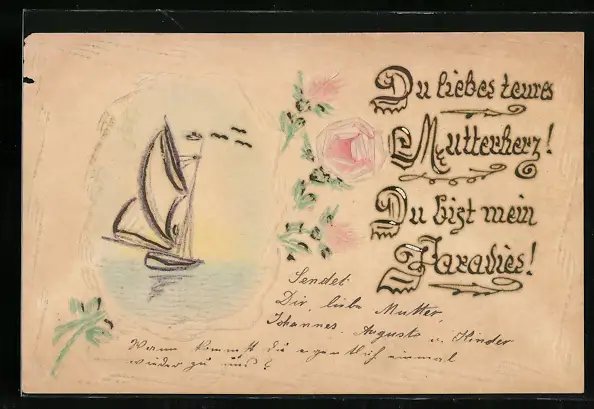 Du liebes teures
Mutterherz!
Du bist mein
Paradies!
Sendet
Dir, liebe Mutter,
Johannes. Auguste u. Kinder
Wann kommst du eigentlich einmal
wieder zu uns?